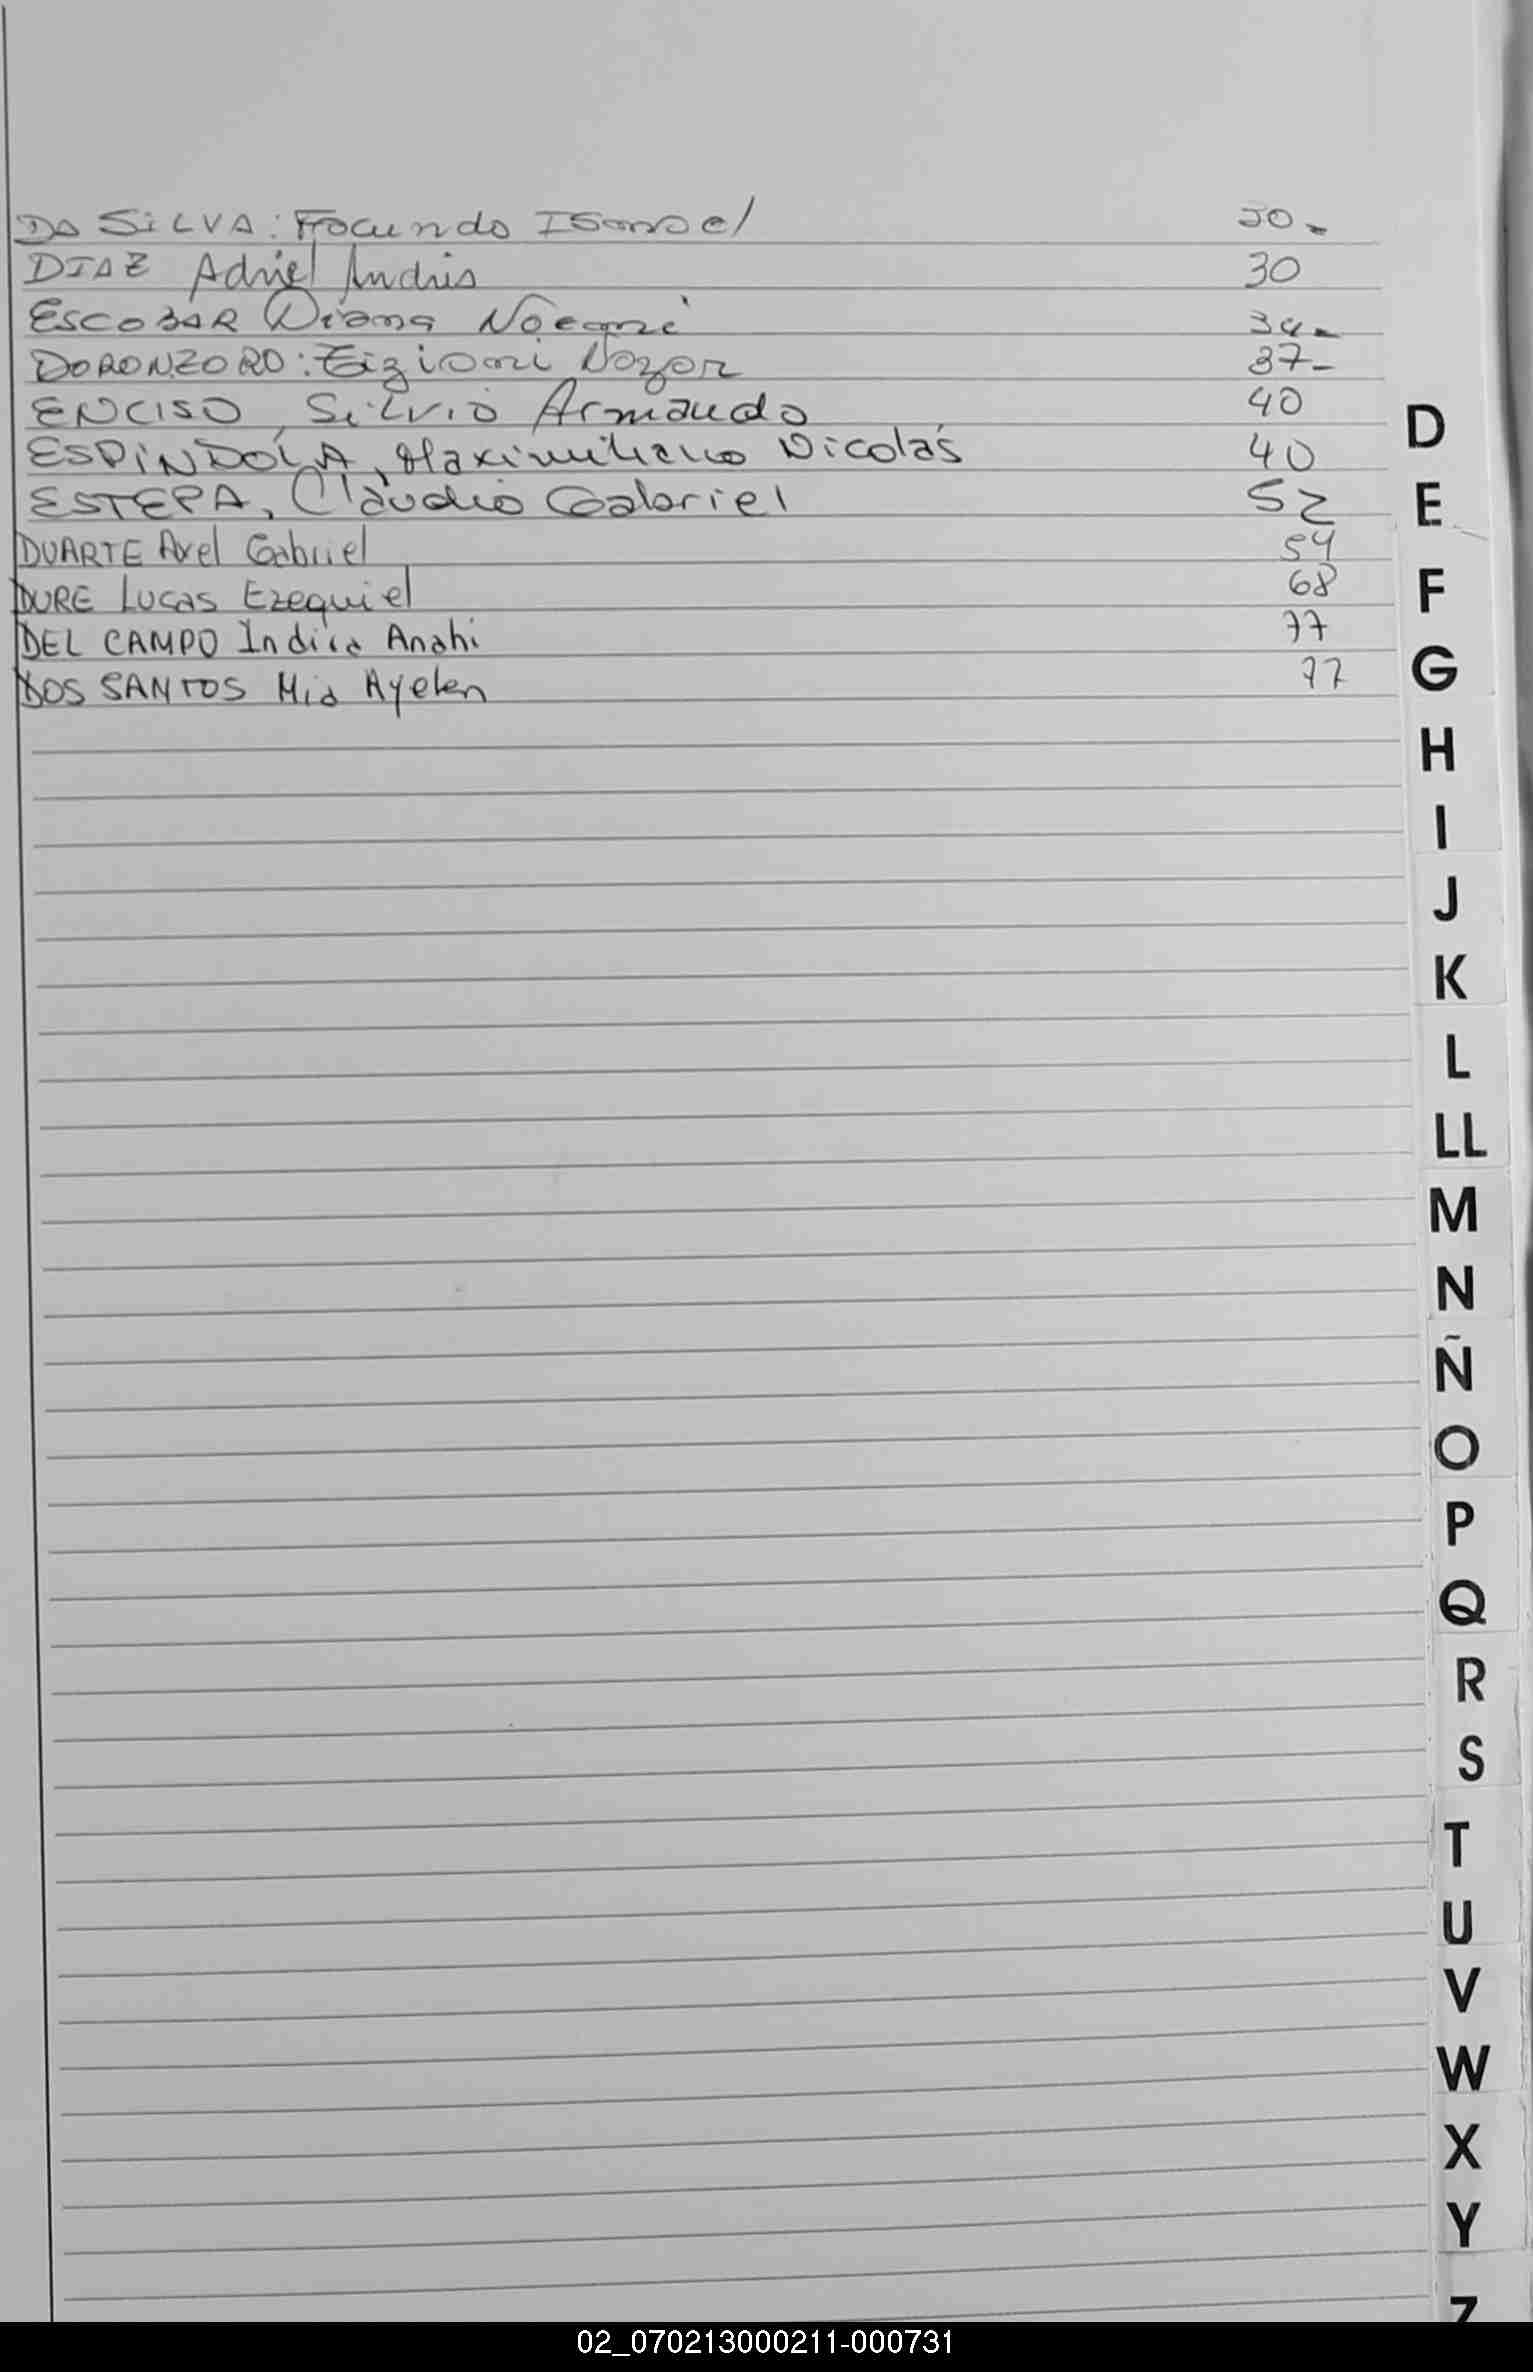 DA SILVA: Facundo Ismael 30.-
DIAZ Adriel Andrés 30
ESCOBAR Diana Noemí 34.-
DORONZORO: Nazar 37-
ENCISO, Silvio Armando 40
ESPÍNDOLA, Maximiliano Nicolás 40
ESTEPA, Claudio Gabriel 52
DUARTE Axel Gabriel 54
DURE Lucas Ezequiel 68
DEL CAMPO Indira Anahi 77
DOS SANTOS Mia Ayelen 77
D
E
F
G
H
I
J
K
L
LL
M
N
Ñ
O
P
Q
R
S
T
U
V
W
X
Y
Z
02_070213000211-000731